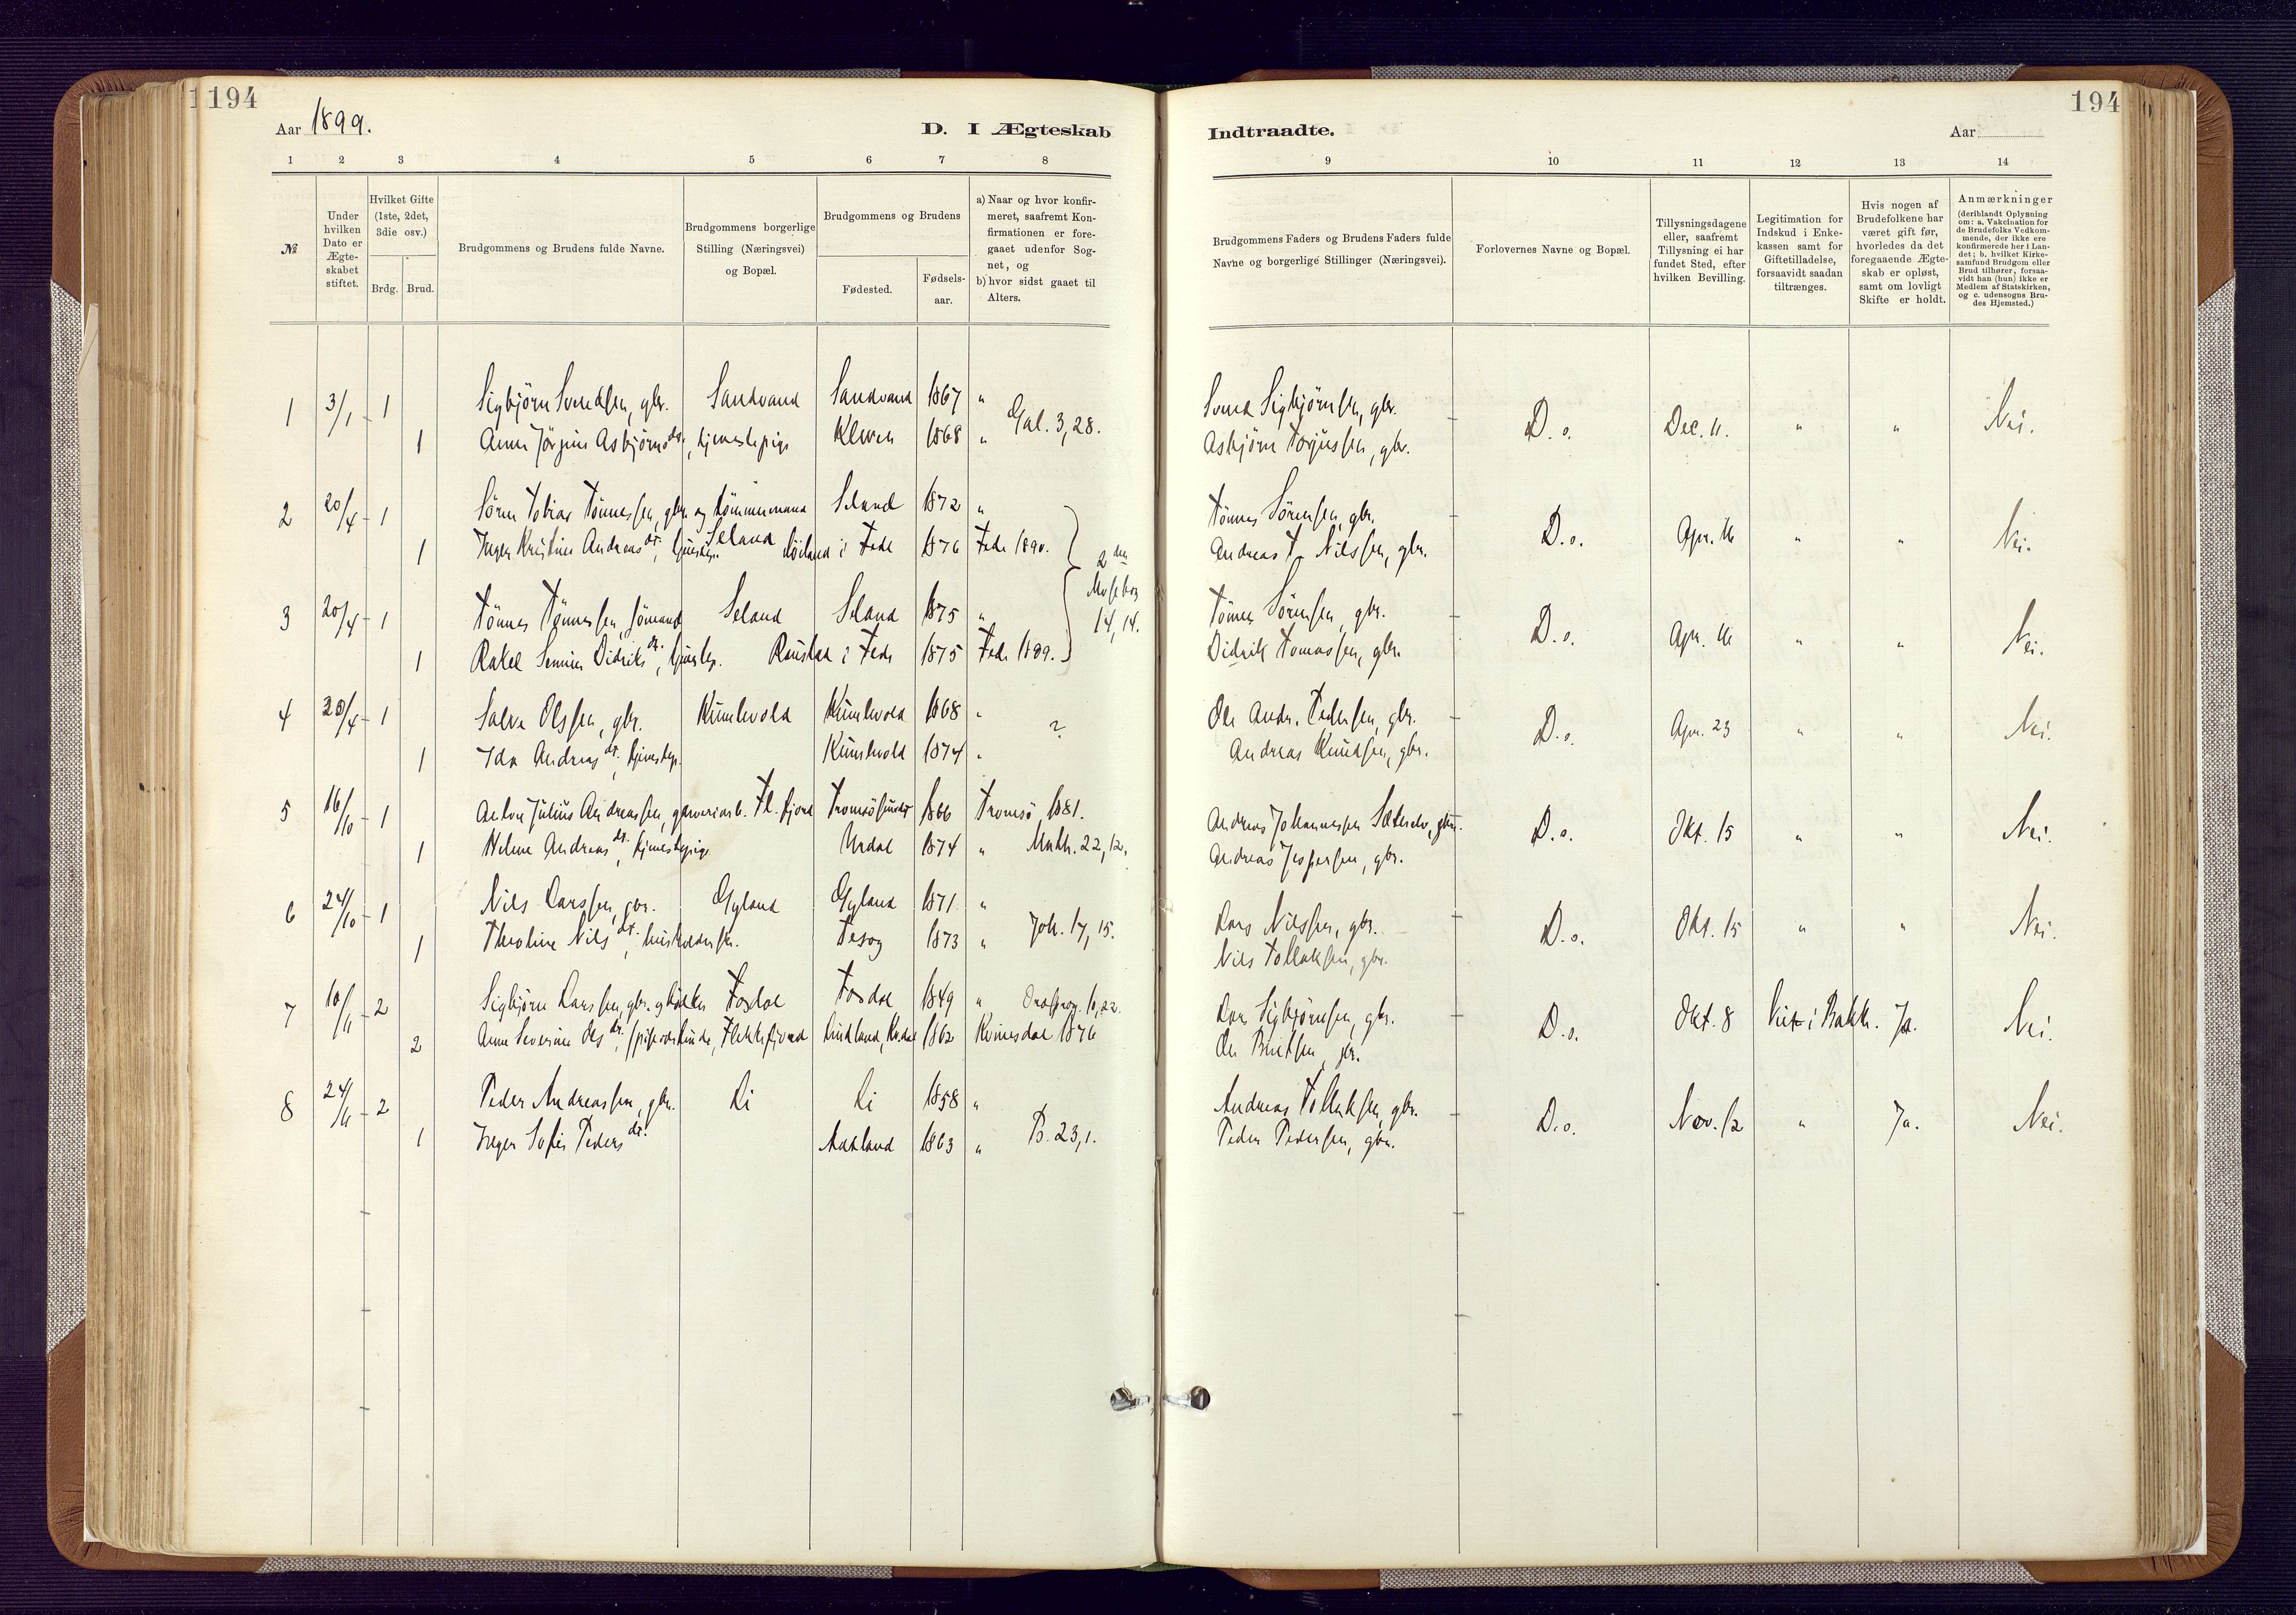 194
194
Aar 1899.
D. I Ægteskab
Indtraadte.
Aar
1 2 3 4 5 6 7 8
9 10 11 12 13 14
№
Under hvilken Dato er Ægte-skabet stiftet.
Hvilket Gifte (1ste, 2det, 3die osv.)
Brdg. Brud.
Brudgommens og Brudens fulde Navne.
Brudgommens borgerlige Stilling (Næringsvei) og Bopæl.
Brudgommens og Brudens
Fødested.
Fødsels-aar.
a) Naar og hvor konfir-meret, saafremt Kon-firmationen er fore-gaaet udenfor Sog-net, og
b) hvor sidst gaaet til Alters.
Brudgommens Faders og Brudens Faders fulde Navne og borgerlige Stillinger (Næringsvei).
Forlovernes Navne og Bopæl.
Tillysningsdagene eller, saafremt Tillysning ei har fundet Sted, efter hvilken Bevilling.
Legitimation for Indskud i Enke-kassen samt for Giftetilladelse, forsaavidt saadan tiltrænges.
Hvis nogen af Brudefolkene har været gift før, hvorledes da det foregaaende Ægte-skab er opløst, samt om lovligt Skifte er holdt.
Anmærkninger (deriblandt Oplysning om: a. Vakcination for de Brudefolks Vedkom-mende, der ikke ere konfirmerede her i Lan-det; b. hvilket Kirke-samfund Brudgom eller Brud tilhører, forsaa-vidt han (hun) ikke er Medlem af Statskirken, og c. udensogns Bru-des Hjemsted.)
1 3/1 1 Sigbjørn Svendsen, gbr. Sandvand Sandvand 1867 " Gal. 3,28. Svend Sigbjørnsen, gbr. D.o. Dec. 11. " " Nei.
1 Anne Jørgine Asbjørnsdr., tjenestepige Kleven 1868 " Asbjørn Torjussen, gbr.
2 20/4 1 Søren Tobias Tønnessen, gbr. og tømmermand Seland 1872 " Tønnes Sørensen, gbr. D.o. Apr. 16 " " Nei.
Seland
1 Inger Kristine Andreasdr., i Fede 1876 Fede 1890. Andreas T. Nilssen, gbr.
2den Moseb. 14,14.
3 20/4 1 Tønnes Tønnessen, sømand Seland Seland 1875 " Tønnes Sørensen, gbr. D.o. Apr. 16 " " Nei.
1 Rakel Didriksdr., i Fede 1875 Fede 1889. Didrik Tomassen, gbr.
4 1 Salve Olssen, gbr. Kumlevold Kumlevold 1868 " ? Ole Andr. Pedersen, gbr. D.o. Apr. 23 " " Nei.
1 Ida Andreasdr., tjenestep. Kumlevold 1874 " Andreas Knudsen, gbr.
5 16/10 1 Anton Julius Andreassen, garveriarb. Fl.fjord Tromsøsundet 1866 Tromsø 1881. Andreas Johannessen, gbr. D.o. Okt. 15 " " Nei.
1 Andreasdr., tjenestepige 1874 " Matth. 22,12. Andreas Jespersen, gbr.
6 24/10 1 Nils Larssen, gbr. Gyland Gyland 1871 " Joh. 17,15. Lars Nilssen, gbr. D.o. Okt. 15 " " Nei.
1 Theoline Nilsdr., husholderske. Tesog 1873 " Nils Tollaksen, gbr.
7 10/11 2 Sigbjørn Larssen, gbr. og Tosdal Tosdal 1849 " Ordsprog. 10,22. Lars Sigbjørnsen, gbr. D.o. Okt. 8 i Bakk. Ja. Nei.
2 Anne Severine Olsdr., Flekkefjord 1862 Kvinesdal 1876 Ole gbr.
8 24/11 2 Peder Andreassen, gbr. Li Li 1858 " Ps. 23,1. Andreas Tollaksen, gbr. D.o. Nov. 12 " Ja. Nei.
1 Inger Sofie Pedersdr. Aukland 1863 " Peder Pedersen, gbr.